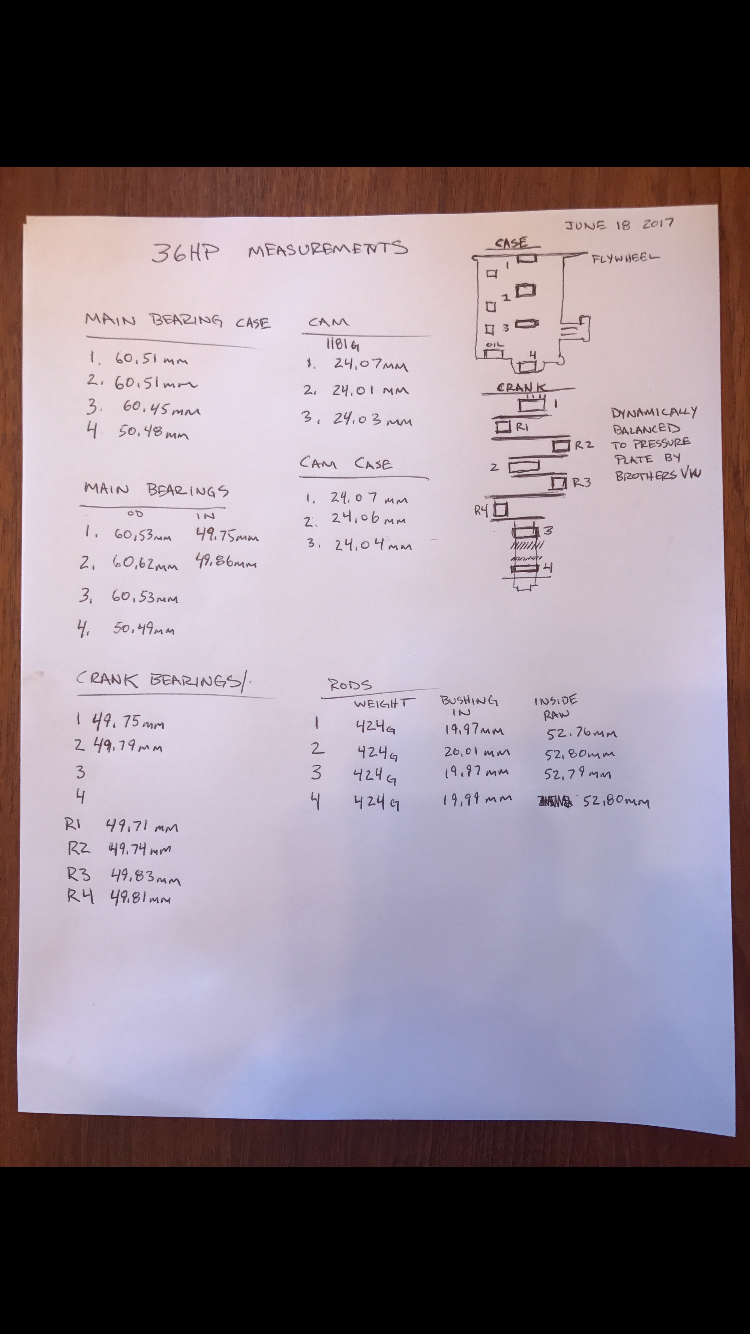 JUNE 18 2017
36HP MEASUREMENTS
CASE
FLYWHEEL
1
2
3
OIL
4
MAIN BEARING CASE
1. 60.51 mm
2. 60.51mm
3. 60.45mm
4 50.48mm
CAM
1181G
1. 24.07MM
2. 24.01 MM
3. 24.03 MM
CRANK
1
R1
R2
2
R3
R4
3
4
DYNAMICALLY
BALANCED
TO PRESSURE
PLATE BY
BROTHERS VW
CAM CASE
1. 24.07 MM
2. 24.06 MM
3. 24.04 MM
MAIN BEARINGS
OD IN
1. 60,53mm 49.75mm
2. 60,62mm 49.86mm
3. 60.53mm
4. 50.49mm
CRANK BEARINGS/
1 49.75mm
2 49.79mm
3
4
R1 49.71 mm
R2 49.74 mm
R3 49.83mm
R4 49.81mm
RODS
WEIGHT BUSHING IN INSIDE RAW
1 424G 19.97mm 52.76mm
2 424G 20.01mm 52.80mm
3 424G 19.97mm 52.79mm
4 424G 19.99mm 52.80mm